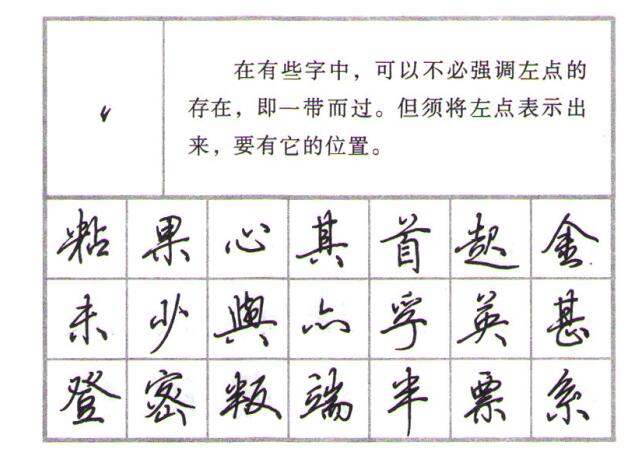 在有些字中，可以不必强调左点的
存在，即一带而过。但须将左点表示出
来，要有它的位置。
粘 果 心 其 首 起 金
未 少 與 亦 孚 英 甚
登 密 叛 端 半 票 系